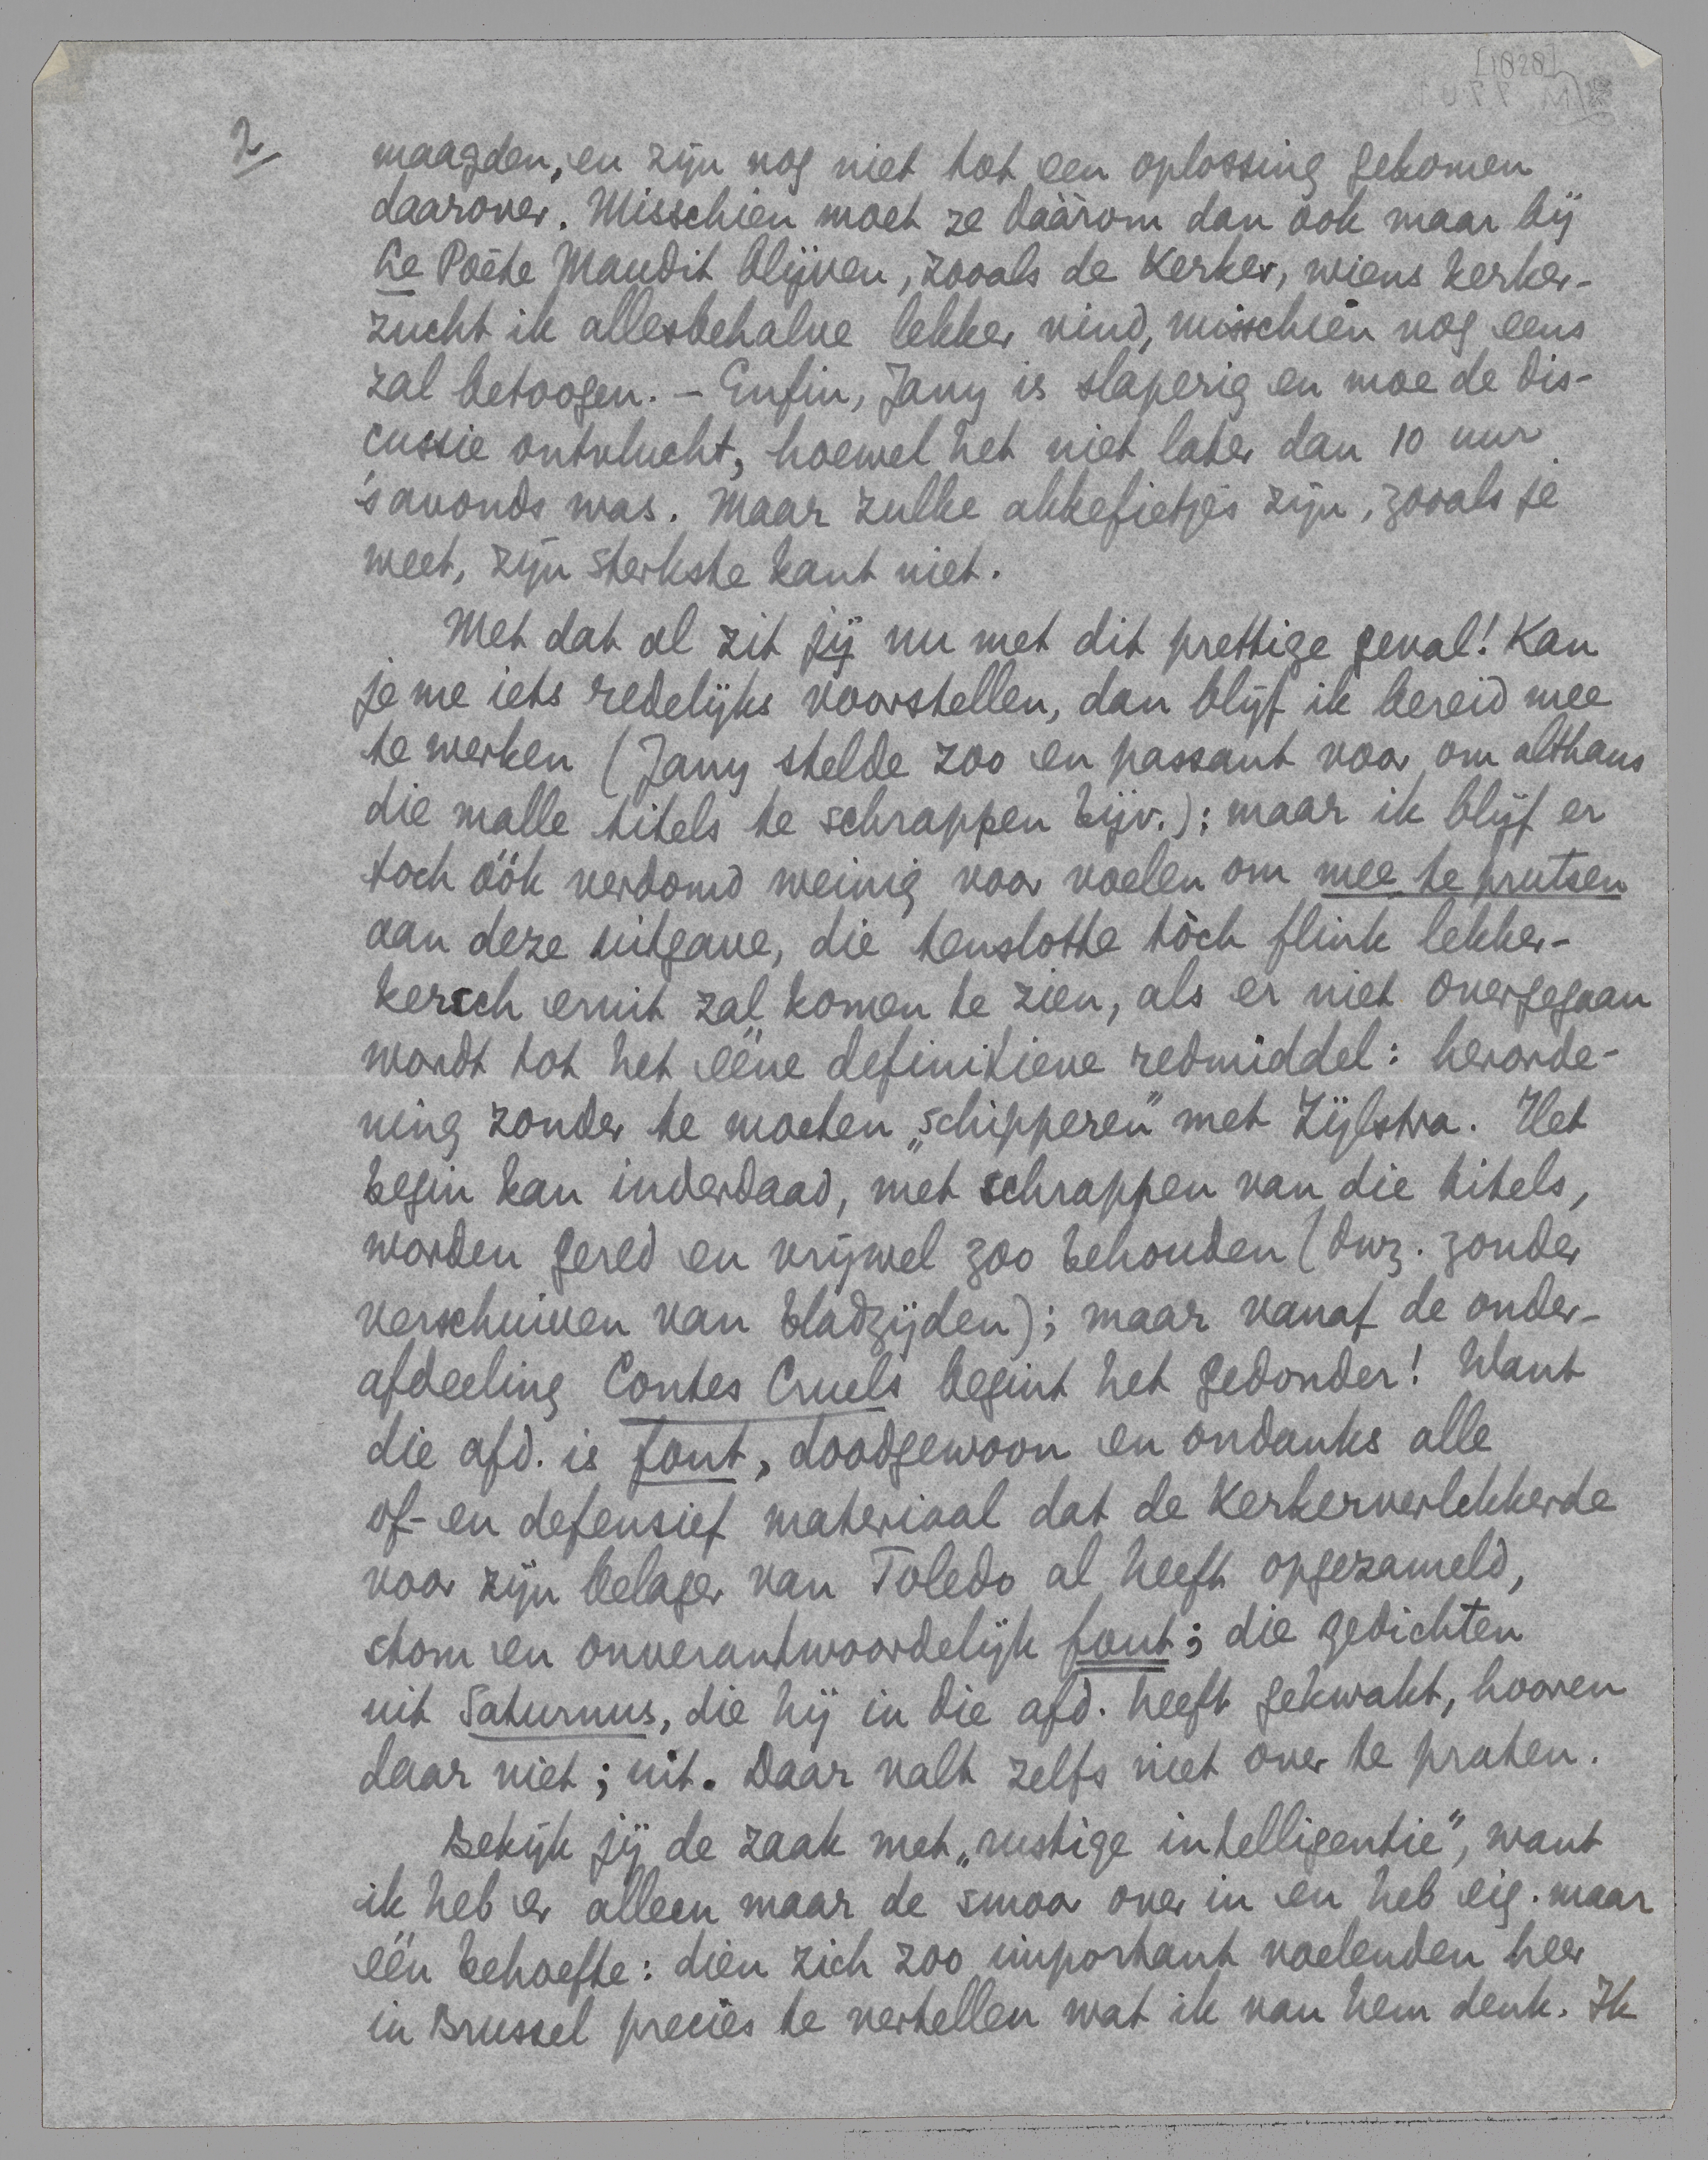 [1828]
2
maagden, en zijn nog niet tot een oplossing gekomen
daarover. Misschien moet ze dáárom dan ook maar bij
Le Poète Maudit blijven, zooals de Kerker, wiens kerker-
zucht ik allesbehalve lekker vind, misschien nog eens
zal betoogen. – Enfin, Jany is slaperig en moe de dis-
cussie ontvlucht, hoewel het niet later dan 10 uur
's avonds was. Maar zulke akkefietjes zijn, zooals je
weet, zijn sterkste kant niet.
Met dat al zit jij nu met dit prettige geval! Kan
je me iets redelijks voorstellen, dan blijf ik bereid mee
te werken (Jany stelde zoo en passant voor om althans
die malle titels te schrappen bijv.); maar ik blijf er
toch óók verdomd weinig voor voelen om mee te prutsen
aan deze uitgave, die tenslotte tòch flink lekker-
kersch eruit zal komen te zien, als er niet overgegaan
wordt tot het ééne definitieve redmiddel: herorde-
ning zonder te moeten „schipperen" met Zijlstra. Het
begin kan inderdaad, met schrappen van die titels,
worden gered en vrijwel zoo behouden (dwz. zonder
verschuiven van bladzijden); maar vanaf de onder-
afdeeling Contes Cruels begint het gedonder! Want
die afd. is fout, doodgewoon en ondanks alle
of- en defensief materiaal dat de Kerkerverlekkerde
voor zijn belager van Toledo al heeft opgezameld,
stom en onverantwoordelijk fout; die gedichten
uit Saturnus, die hij in die afd. heeft gekwakt, hooren
daar niet; uit. Daar valt zelfs niet over te praten.
Bekijk jij de zaak met „rustige intelligentie", want
ik heb er alleen maar de smoor over in en heb eig. maar
één behoefte: dien zich zoo important voelenden heer
in Brussel precies te vertellen wat ik van hem denk. Ik